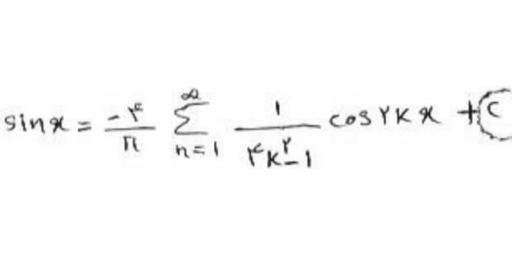 sinx = -۴/π ∑_{n=1}^{∞} 1/(۴k^۲-1) cos۲kx + C